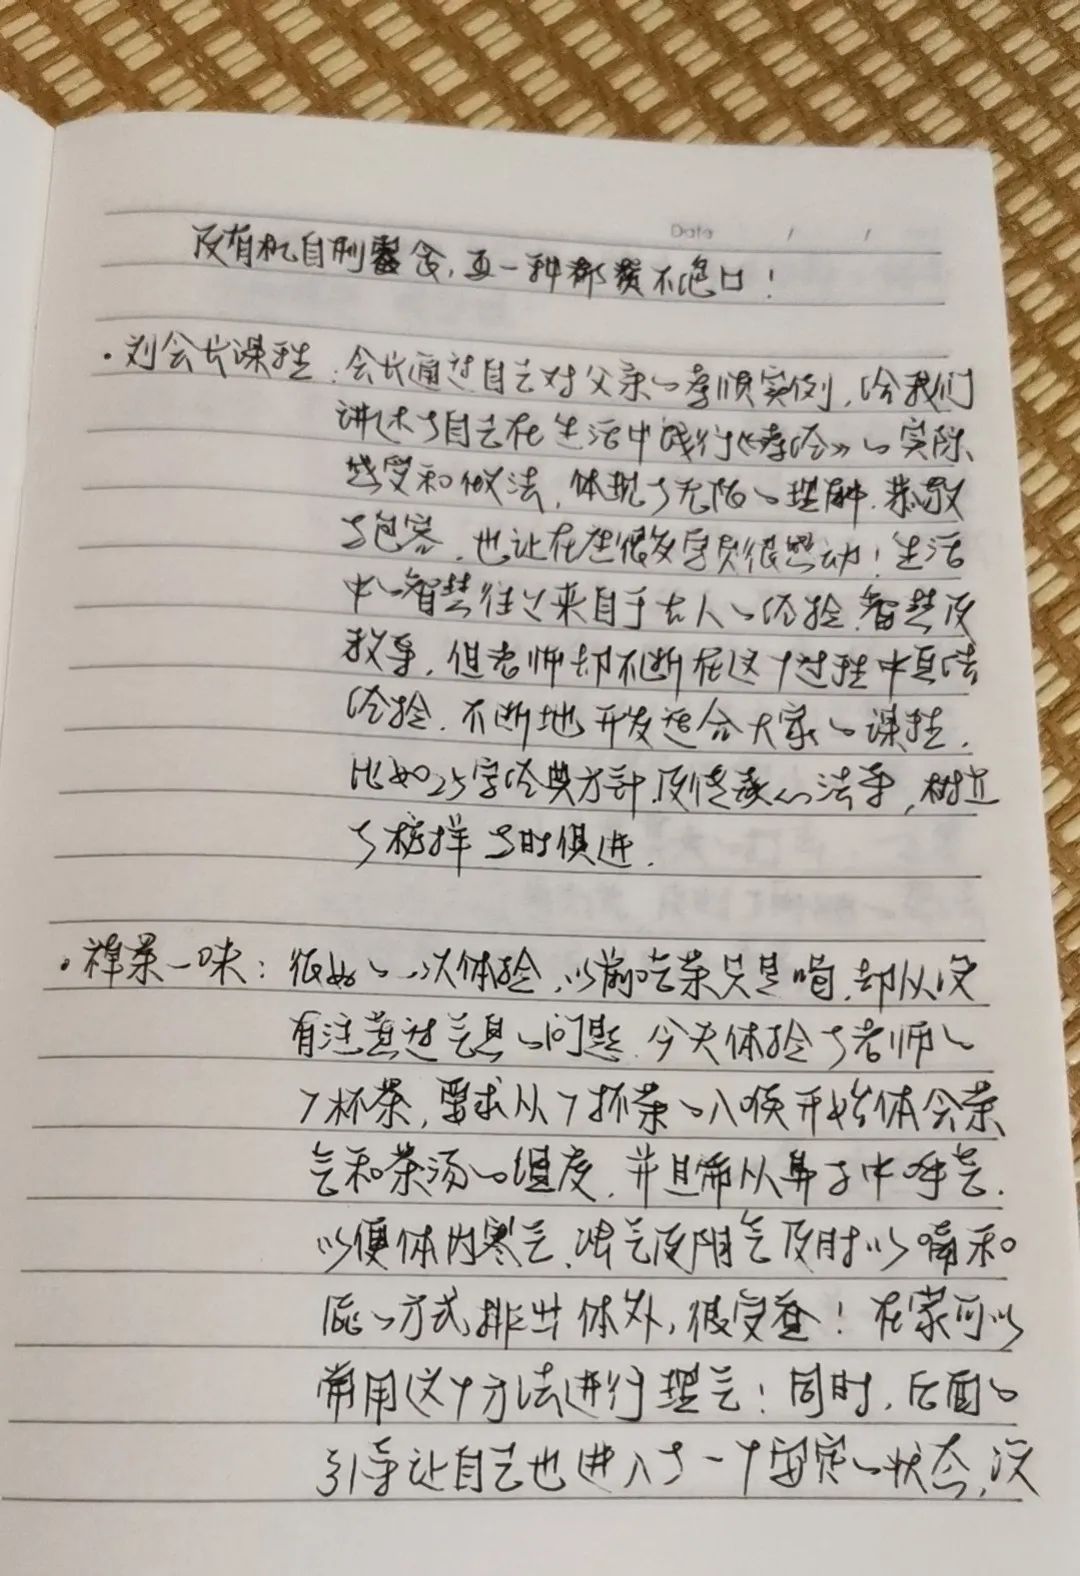 Data / /
及有机自制零食,每一种都赞不绝口!
·刘会长课程:会长通过自己对父亲的孝顺实例,给我们
讲述了自己在生活中践行《孝经》的实际
感受和做法,体现了无限的理解、恭敬
与包容,也让在座很多学员很感动!生活
中的智慧往往来自于古人的经验、智慧及
教导,但老师却不断在这个过程中总结
经验,不断地开发适合大家的课程,
比如25字经典方针及读的法等,树立
了榜样与时俱进.
·禅茶一味:很好的一次体验,以前吃茶只是喝,却从没
有注意过气息的问题.今天体验了老师的
7杯茶,要求从7杯茶的入喉开始体会茶
气和茶汤的温度,并且需从鼻子中呼气,
以便体内寒气、浊气及阴气及时以嗝和
屁的方式排出体外,很受益!在家可以
常用这个方法进行理气!同时,后面的
引导让自己也进入了一个安定的状态,没